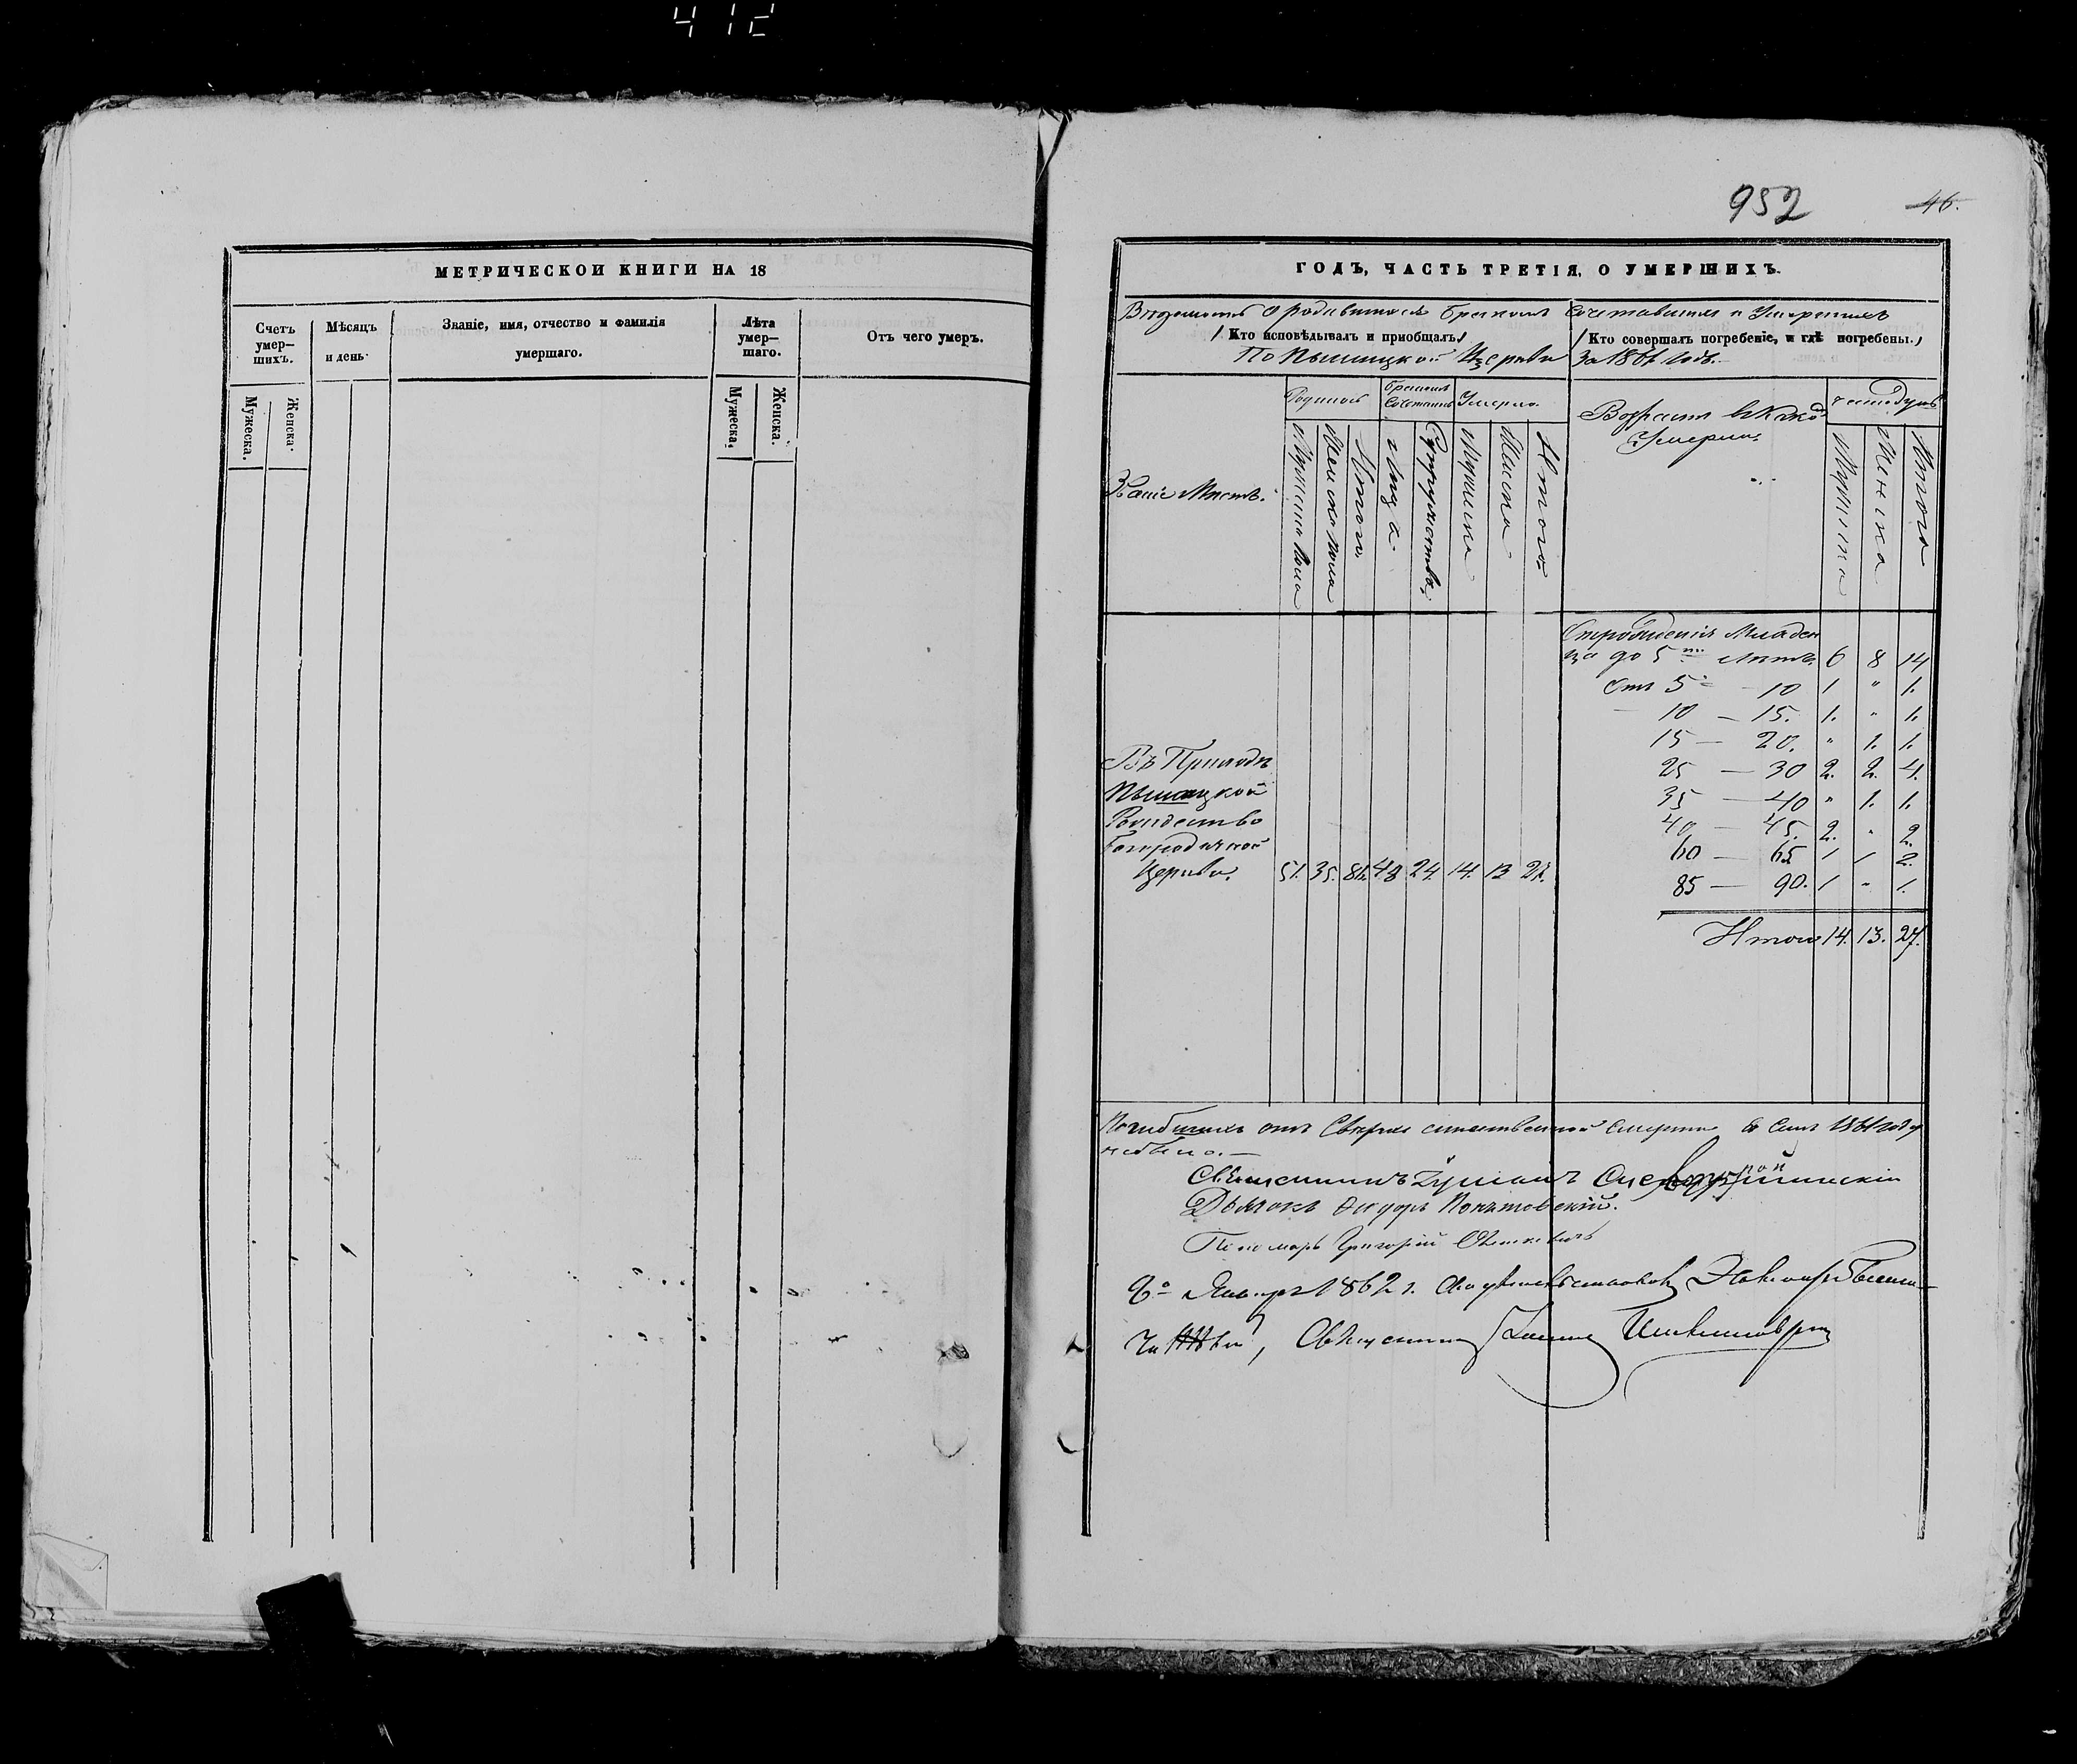 412
МЕТРИЧЕСКОЙ КНИГИ НА 18
Счетъ умер-
шихъ.
Мѣсяцъ
и день.
Званіе, имя, отчество и фамилія
умершаго.
Лѣта
умер-
шаго.
Отъ чего умеръ.
Мужеска.
Женска.
Мужеска.
Женска.
952
46.
ГОДЪ, ЧАСТЬ ТРЕТІЯ, О УМЕРШИХЪ.
Вѣдомость о родившихся Бракомъ Сочетавшихся и Умершихъ
Кто исповѣдывалъ и пріобщалъ.
Кто совершалъ погребеніе, и гдѣ погребены.
По Пышицкой Церкви
За 1861 годъ.
Родилось
Бракомъ
Сочетались
Умерло
Возрастъ въ како
Умерли
число душъ
Званіе Мѣстъ.
Мужеска пола
Женска пола
Итого
Лица
Супружества
Мужеска
Женска
Итого
Мужеска
Женска
Итого
Отрожденія Младен
ца до 5ти лѣтъ 6 8 14
Отъ 5 — 10 1 " 1.
10 — 15. 1. " 1.
15 — 20. " 1. 1.
Въ Приходѣ
25 — 30 2. 2. 4.
Пышицкой
35 — 40 " 1. 1.
Рождество
40 — 45. 2. " 2.
Богородичной
60 — 65 1 1 2.
Церкви. 51. 35. 86. 48 24. 14. 13 27.
85 — 90. 1 " 1.
Итого 14. 13. 27.
Погибшихъ отъ Сверхъестественной смерти въ семъ 1861 году
небыло. —
Священникъ
Дьячокъ Ѳедоръ
Пономарь Григорій
Января 1862 г.
Священникъ